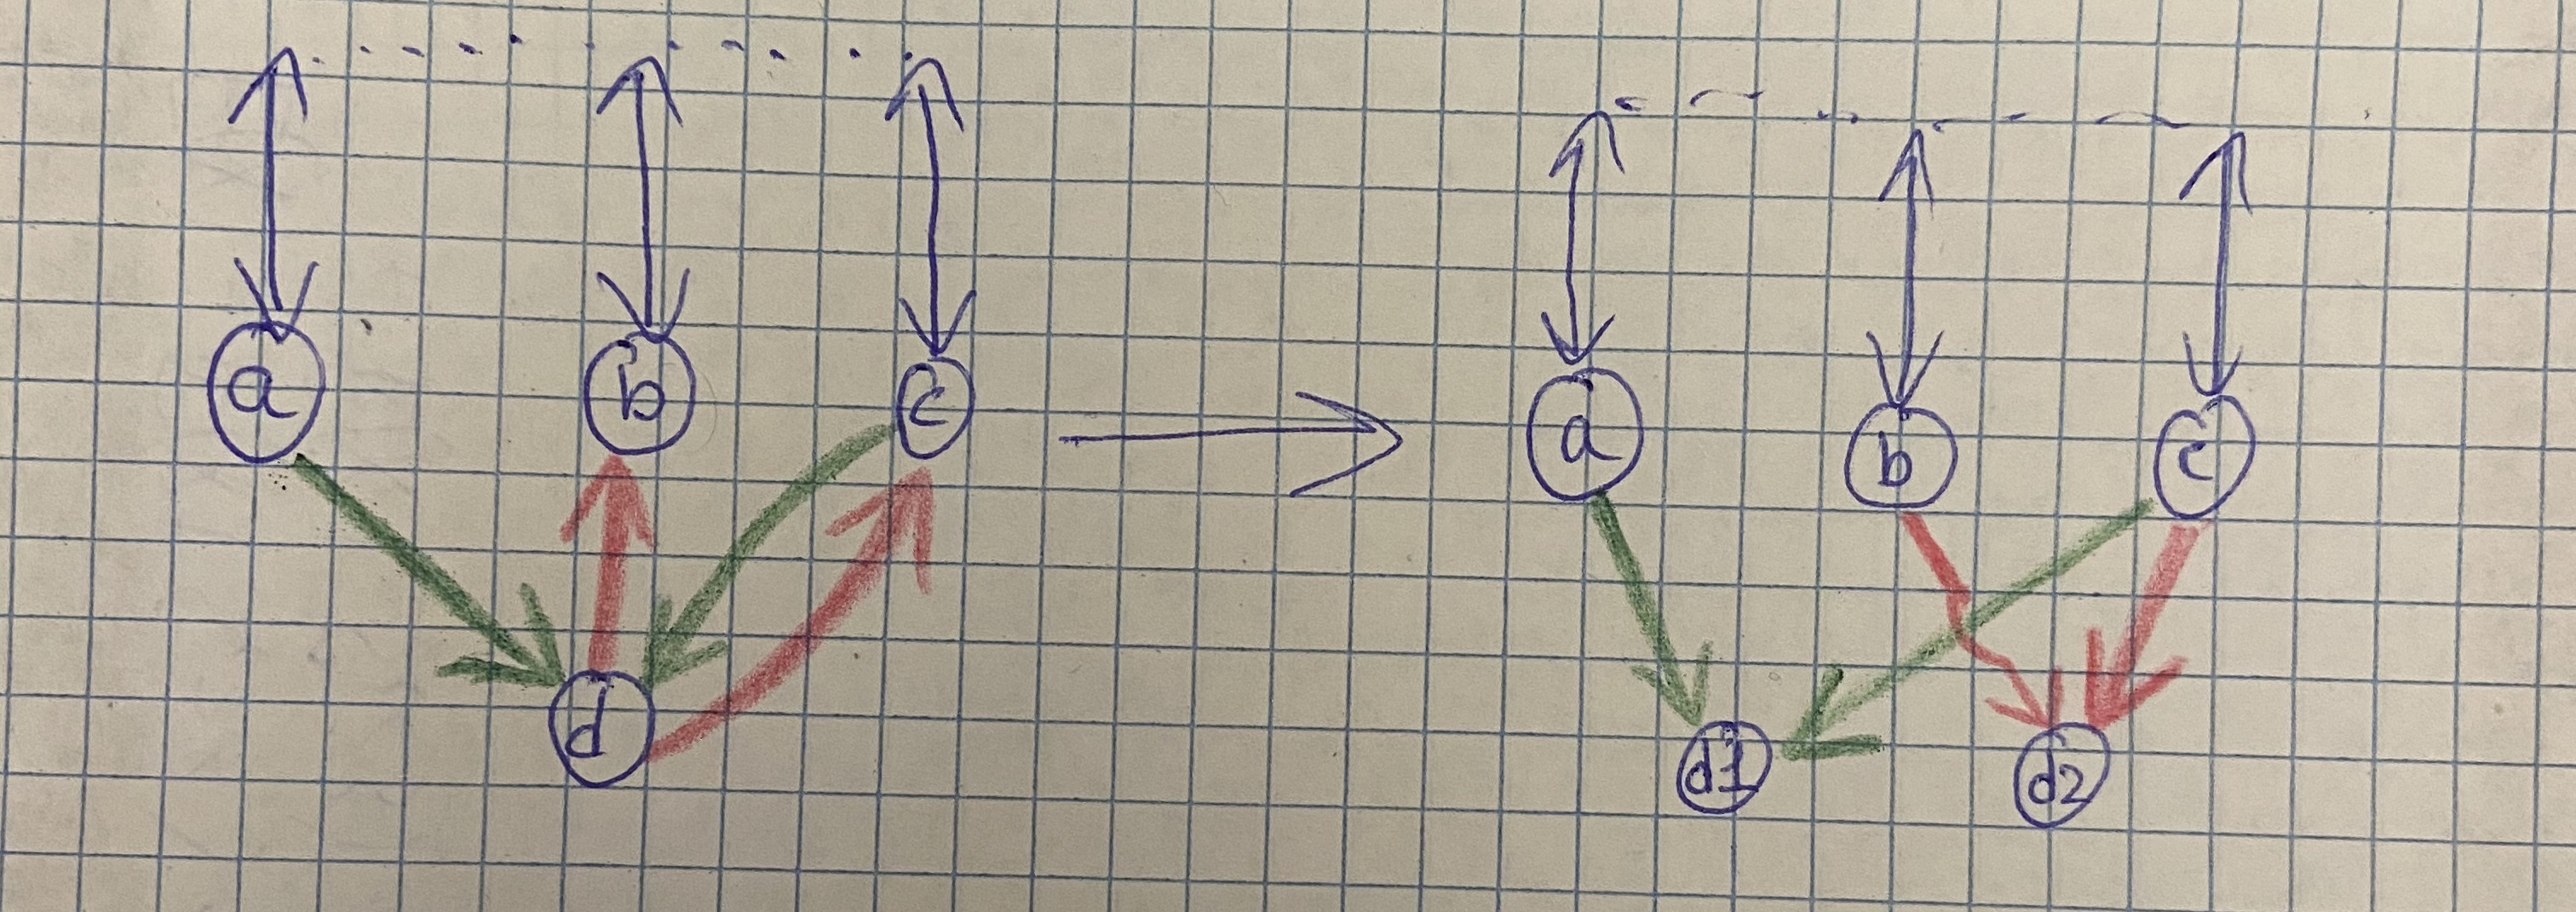 a b c a b c
d d1 d2